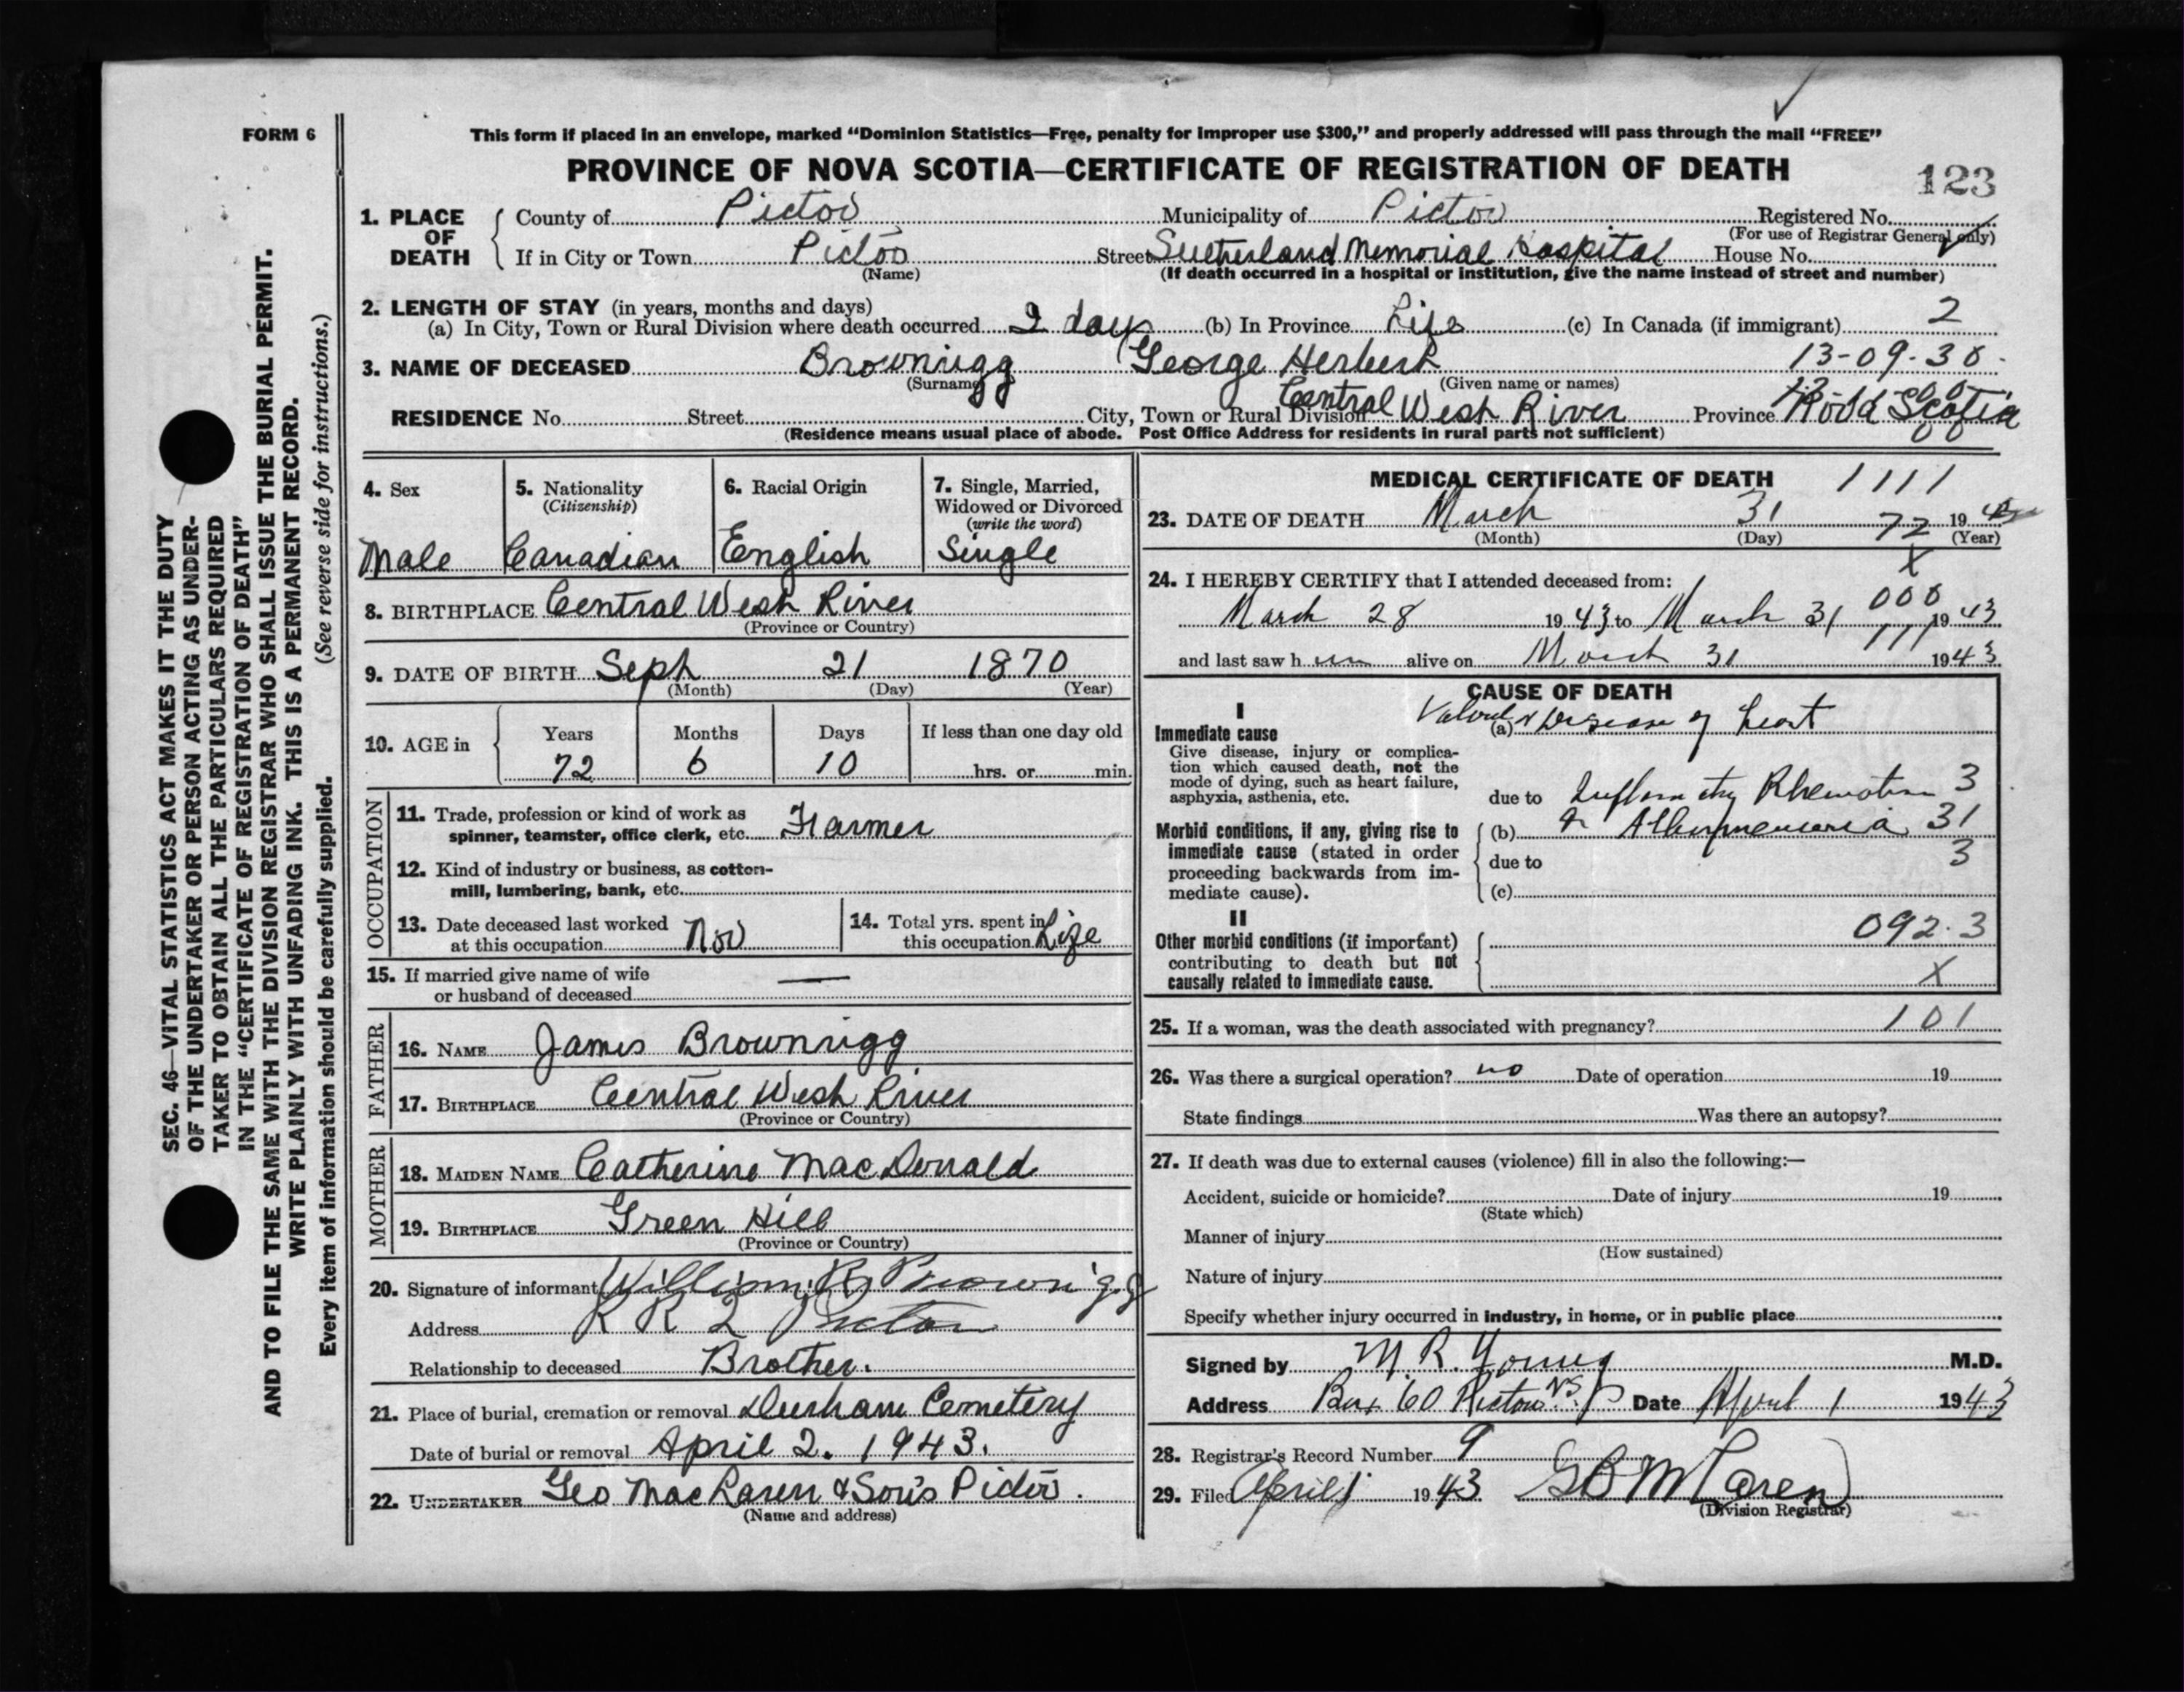 FORM 6
This form if placed in an envelope, marked “Dominion Statistics—Free, penalty for improper use $300,” and properly addressed will pass through the mail “FREE”
PROVINCE OF NOVA SCOTIA—CERTIFICATE OF REGISTRATION OF DEATH
123
1. PLACE OF DEATH
County of Pictou Municipality of Pictou Registered No.
(For use of Registrar General only)
If in City or Town Pictou Street Sutherland Memorial Hospital House No.
(Name) (If death occurred in a hospital or institution, give the name instead of street and number)
2. LENGTH OF STAY (in years, months and days)
(a) In City, Town or Rural Division where death occurred 2 days (b) In Province Life (c) In Canada (if immigrant) 2
3. NAME OF DECEASED Brownrigg George Herbert 13-09-30
(Surname) (Given name or names)
RESIDENCE No. Street City, Town or Rural Division Central West River Province Nova Scotia
(Residence means usual place of abode. Post Office Address for residents in rural parts not sufficient)
4. Sex
Male
5. Nationality
(Citizenship)
Canadian
6. Racial Origin
English
7. Single, Married,
Widowed or Divorced
(write the word)
Single
8. BIRTHPLACE Central West River
(Province or Country)
9. DATE OF BIRTH Sept 21 1870
(Month) (Day) (Year)
10. AGE in
Years Months Days If less than one day old
72 6 10 hrs. or min.
OCCUPATION
11. Trade, profession or kind of work as
spinner, teamster, office clerk, etc. Farmer
12. Kind of industry or business, as cotton-
mill, lumbering, bank, etc.
13. Date deceased last worked
at this occupation Nov
14. Total yrs. spent in
this occupation Life
15. If married give name of wife
or husband of deceased —
FATHER
16. NAME James Brownrigg
17. BIRTHPLACE Central West River
(Province or Country)
MOTHER
18. MAIDEN NAME Catherine MacDonald
19. BIRTHPLACE Green Hill
(Province or Country)
20. Signature of informant William R Brownrigg
Address R R 2 Pictou
Relationship to deceased Brother.
21. Place of burial, cremation or removal Durham Cemetery
Date of burial or removal April 2. 1943.
22. UNDERTAKER Geo MacLaren & Son's Pictou.
(Name and address)
MEDICAL CERTIFICATE OF DEATH 1111
23. DATE OF DEATH March 31 72 19
(Month) (Day) (Year)
X
24. I HEREBY CERTIFY that I attended deceased from:
000
March 28 1943 to March 31 1943
111
and last saw h im alive on March 31 1943
CAUSE OF DEATH
I
Immediate cause
Give disease, injury or complica-
tion which caused death, not the
mode of dying, such as heart failure,
asphyxia, asthenia, etc.
(a) Disease of heart
due to 3
Morbid conditions, if any, giving rise to
immediate cause (stated in order
proceeding backwards from im-
mediate cause).
(b) 31
due to 3
(c)
II
Other morbid conditions (if important)
contributing to death but not
causally related to immediate cause.
092.3
X
25. If a woman, was the death associated with pregnancy? 101
26. Was there a surgical operation? no Date of operation 19
State findings Was there an autopsy?
27. If death was due to external causes (violence) fill in also the following:—
Accident, suicide or homicide? Date of injury 19
(State which)
Manner of injury
(How sustained)
Nature of injury
Specify whether injury occurred in industry, in home, or in public place
Signed by M. R. Young M.D.
Address Box 60 Pictou N.S. Date April 1 1943
28. Registrar's Record Number 9
29. Filed April 1 1943 G B McLaren
(Division Registrar)
SEC. 46—VITAL STATISTICS ACT MAKES IT THE DUTY
OF THE UNDERTAKER OR PERSON ACTING AS UNDER-
TAKER TO OBTAIN ALL THE PARTICULARS REQUIRED
IN THE “CERTIFICATE OF REGISTRATION OF DEATH”
AND TO FILE THE SAME WITH THE DIVISION REGISTRAR WHO SHALL ISSUE THE BURIAL PERMIT.
WRITE PLAINLY WITH UNFADING INK. THIS IS A PERMANENT RECORD.
Every item of information should be carefully supplied. (See reverse side for instructions.)